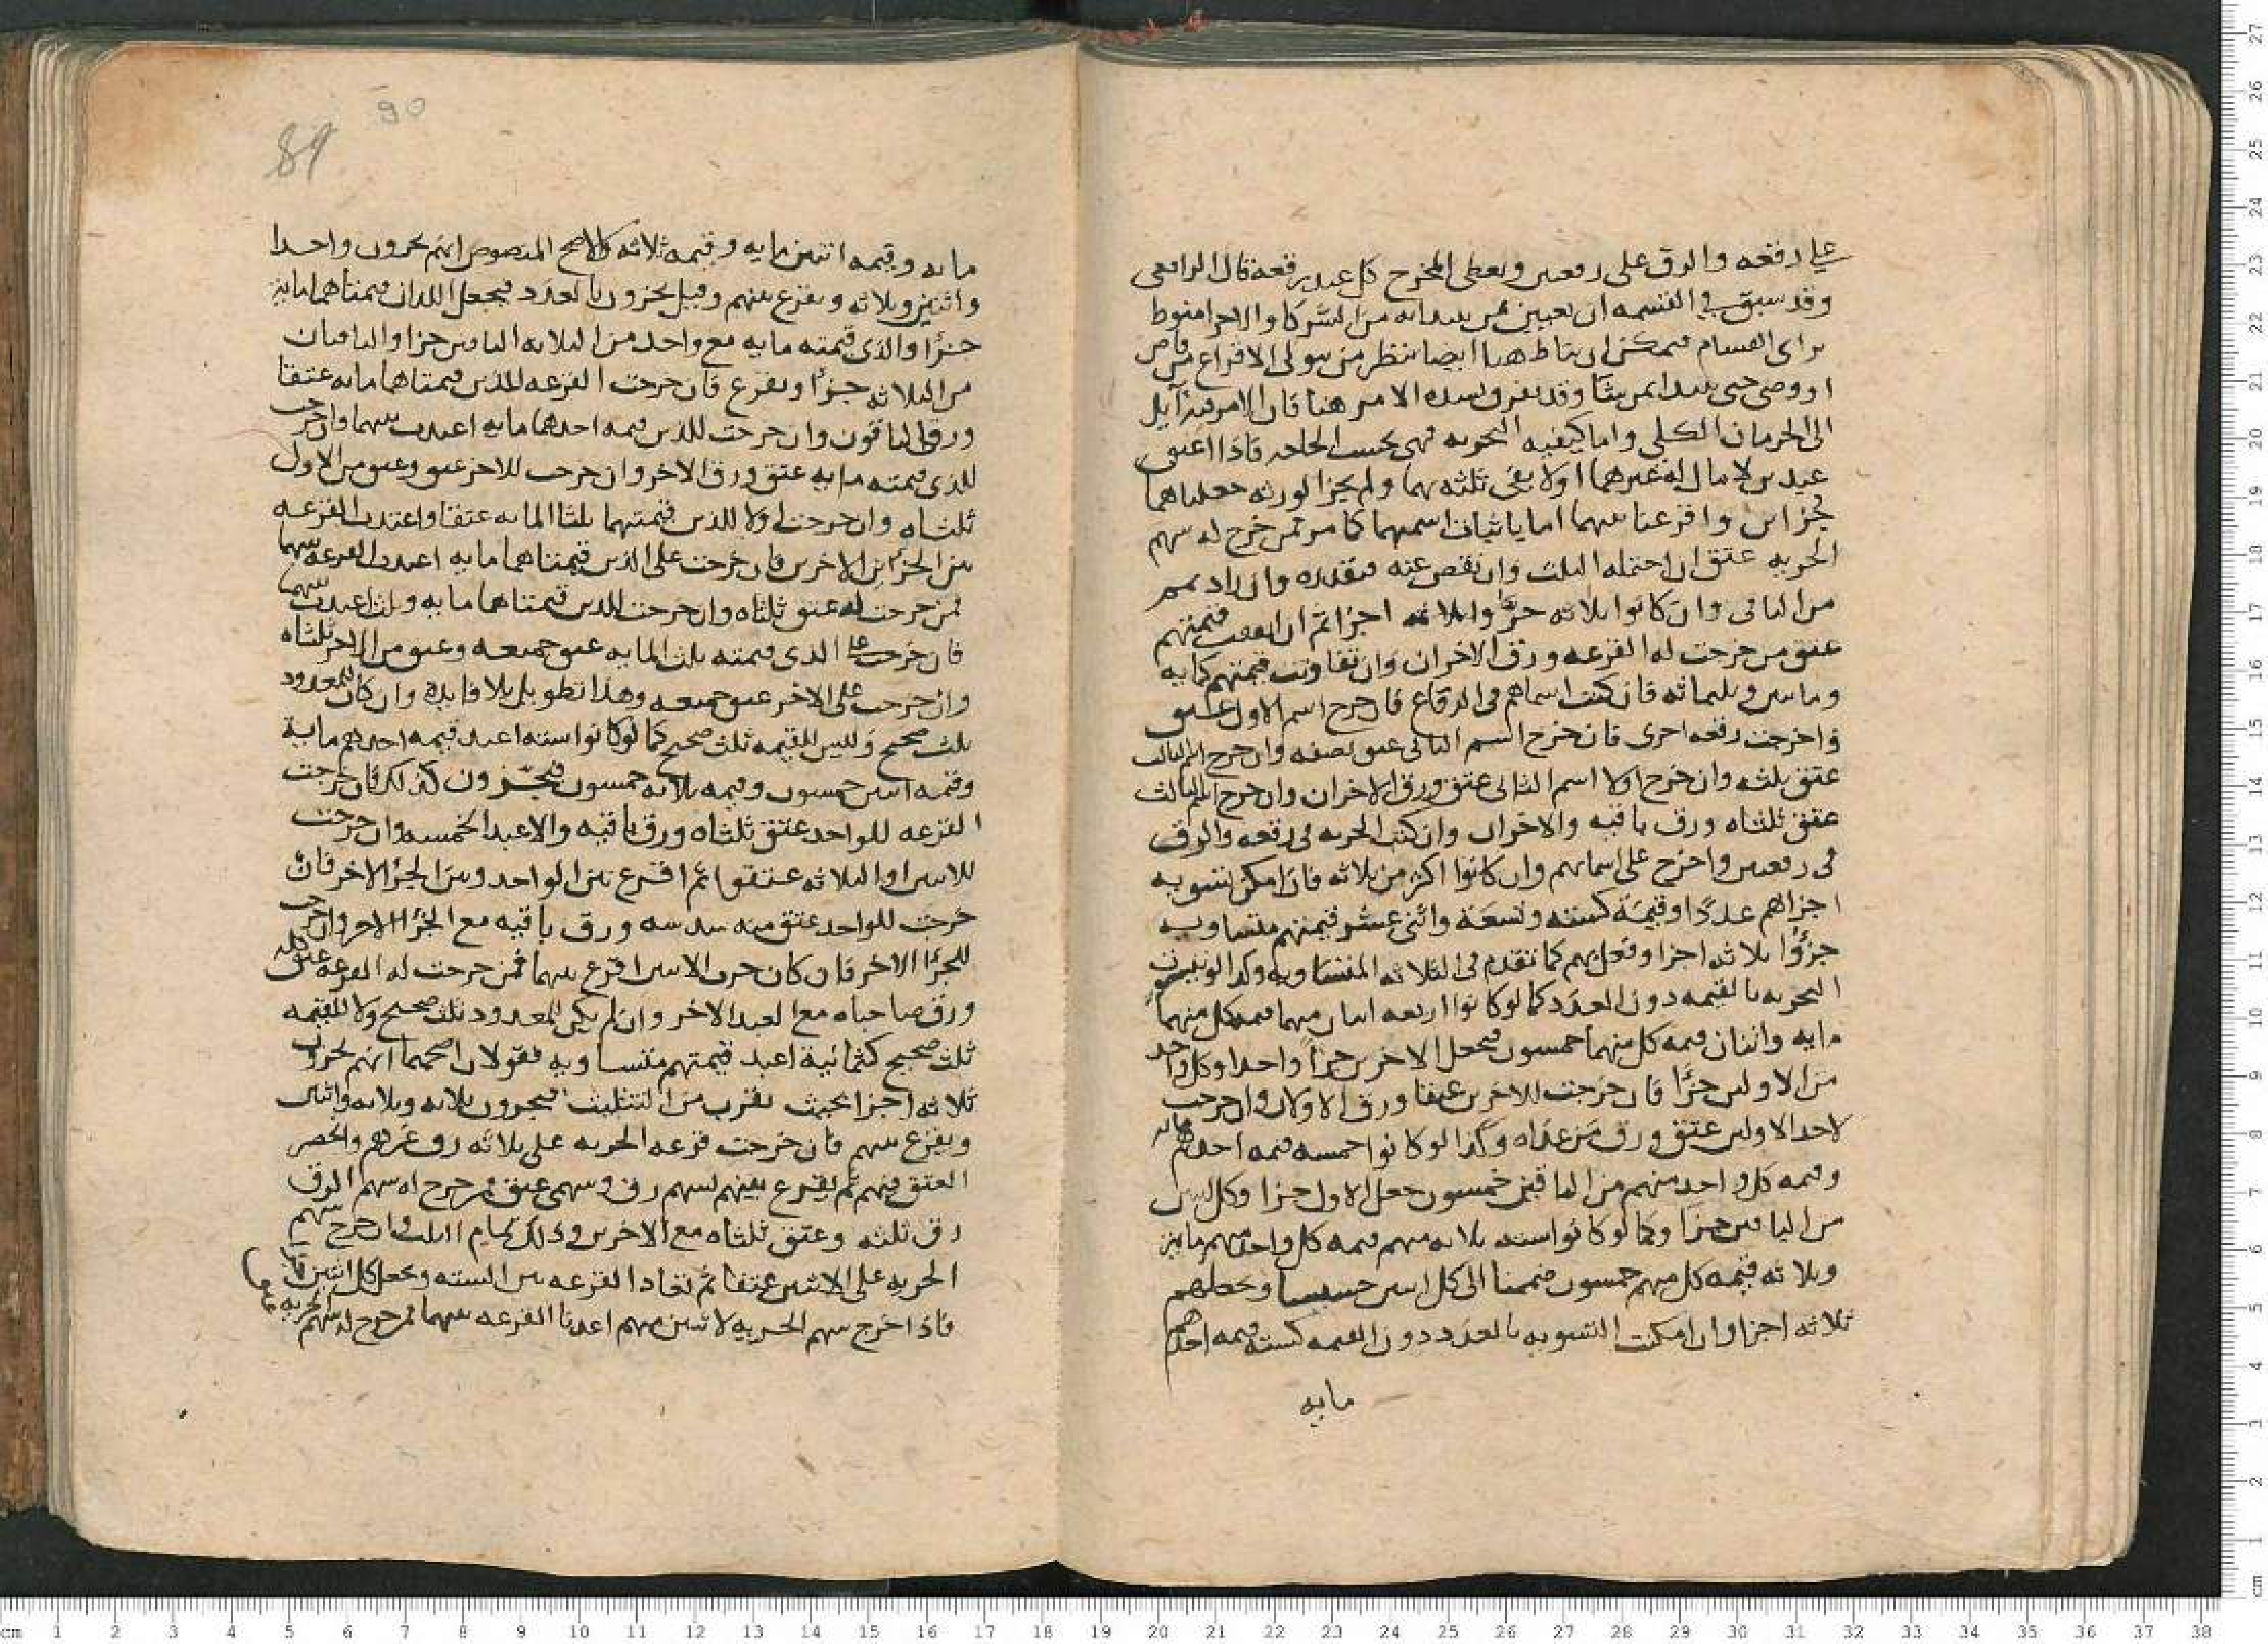 على رقعه والرق على رقعتين ويعطى المخرج كل عبد رقعة قال الرافعى
وقد سبق في القسمه ان تعيين من يبدا به من الشركا والاجزا منوط
براى القسام فيمكن ان يناط هنا ايضا بنظر من يتولى الاقراع من قاض
او وصى حتى يبدا بمن شا وقد يفرق بشده الامر هنا فان الامر فيه آيل
الى الحرمان الكلى واما كيفيه التجزيه فهى بحسب الحاجه فاذا اعتق
عبدين لا مال له غيرهما اولا يفى ثلثه بهما ولم يجز الورثه جعلناهما
جزاين واقرعنا بينهما اما باثبات اسمهما كما مر فمن خرج له سهم
الحريه عتق ان احتمله الثلث وان نقص عنه فبقدره وان زاد تمم
من الثانى وان كانوا ثلاثه جزوا ثلاثه اجزا ثم ان اتفقت قيمتهم
عتق من خرجت له القرعه ورق الاخران وان تفاوتت قيمتهم كمايه
ومايتين وثلثمائه فان كتب اسماهم فى الرقاع فان خرج اسم الاول عتق
واخرجت رقعه اخرى فان خرج اسم الثانى عتق نصفه وان خرج اسم الثالث
عتق ثلثه وان خرج اولا اسم الثانى عتق ورق الاخران وان خرج اسم الثالث
عتق ثلثاه ورق باقيه والاخران وان كتب الحريه فى رقعه والرق
فى رقعتين واخرج على اسمائهم وان كانوا اكثر من ثلاثه فان امكن تسويه
اجزاهم عددا وقيمة كسته وتسعة واثنى عشر قيمتهم متساويه
جزؤا ثلاثه اجزا وفعل بهم كما تقدم فى الثلاثه المتساويه وكذا لو تيسرت
التجزيه بالقيمه دون العدد كما لو كانوا اربعه اثنان منهما قيمه كل منهما
مايه واثنان قيمه كل منهما خمسون فيجعل الاخرين جزأ واحدا وكل واحد
من الاولين جزًا فان خرجت للاخرين عتقا ورق الاولان وان خرجت
لاحد الاولين عتق ورق من عداه وكذا لو كانوا خمسه قيمه احدهم مايه
وقيمه كل واحد منهم من الباقين خمسون جعل الاول جزا وكل اثنين
من الباقين جزًا وكما لو كانوا سته ثلاثه منهم قيمه كل واحد منهم مايتين
وثلاثه قيمه كل منهم خمسون ضممنا الى كل اثنين خسيسا وجعلهم
ثلاثه اجزا وان امكنت التسويه بالعدد دون القيمه كسته قيمه احدهم
مايه
90
89
مايه وقيمه اثنين مايه وقيمه ثلاثه كالاصح المنصوص انهم يجزون واحدا
واثنين وثلاثه ويقرع بينهم وقيل يجزون بالعدد فيجعل اللذان قيمتاهما مايه
جزًا والذى قيمته مايه مع واحد من الثلاثه الباقين جزا والباقيان
من الثلاثه جزًا ويقرع فان خرجت القرعه للذين قيمتاهما مايه عتقا
ورق الباقون وان خرجت للذين قيمه احدهما مايه اعيدت بينهما وان خرجت
للذى قيمته مايه عتق ورق الاخر وان خرجت للاخر عتق وعتق من الاول
ثلثاه وان خرجت اولا للذين قيمتهما ثلثا المايه عتقا واعيدت القرعه
بين الجزئين الاخرين فان خرجت على الذين قيمتاهما مايه اعيدت القرعه بينهما
فمن خرجت له عتق ثلثاه وان خرجت للذين قيمتاهما مايه وثلث اعيدت بينهما
فان خرجت على الذى قيمته ثلث المايه عتق جميعه وعتق من الاخر ثلثاه
وان خرجت على الاخر عتق جميعه وهذا تطويل بلا فايدة وان كان للمعدود
ثلث صحيح وليس للقيمه ثلث صحيح كما لو كانوا سته اعبد قيمه احدهم مايه
وقيمه اثنين خمسون وقيمه ثلاثه خمسون فيجزون كذلك فان خرجت
القرعه للواحد عتق ثلثاه ورق باقيه والاعبد الخمسه وان خرجت
للاثنين او الثلاثه عتقوا ثم اقرع بين الواحد وبين الجزأ الاخر فان
خرجت للواحد عتق منه سدسه ورق باقيه مع الجزأ الاخر وان خرجت
للجزأ الاخر فان كان جزء الاثنين اقرع بينهما فمن خرجت له القرعه عتق كله
ورق صاحباه مع العبد الاخر وان لم يكن للمعدود ثلث صحيح ولا للقيمه
ثلث صحيح كثمانية اعبد قيمتهم متساويه فقولان اصحهما انهم يجزون
ثلاثه اجزا بحيث تقرب من التثليث فيجزون ثلاثه وثلاثه واثنان
ويقرع بينهم فان خرجت قرعه الحريه على ثلاثه رق غيرهم وانحصر
العتق فيهم ثم يقرع بينهم بسهم رق وسهمى عتق فمن خرج له سهم الرق
رق ثلثه وعتق ثلثاه مع الاخرين وذلك تمام الثلث وان خرج سهم
الحريه على الاثنين عتقا ثم تعاد القرعه بين السته ويجعل كل اثنين
فاذا خرج سهم الحريه لاثنين منهم اعدنا القرعه بينهما فمن خرج له سهم الحريه